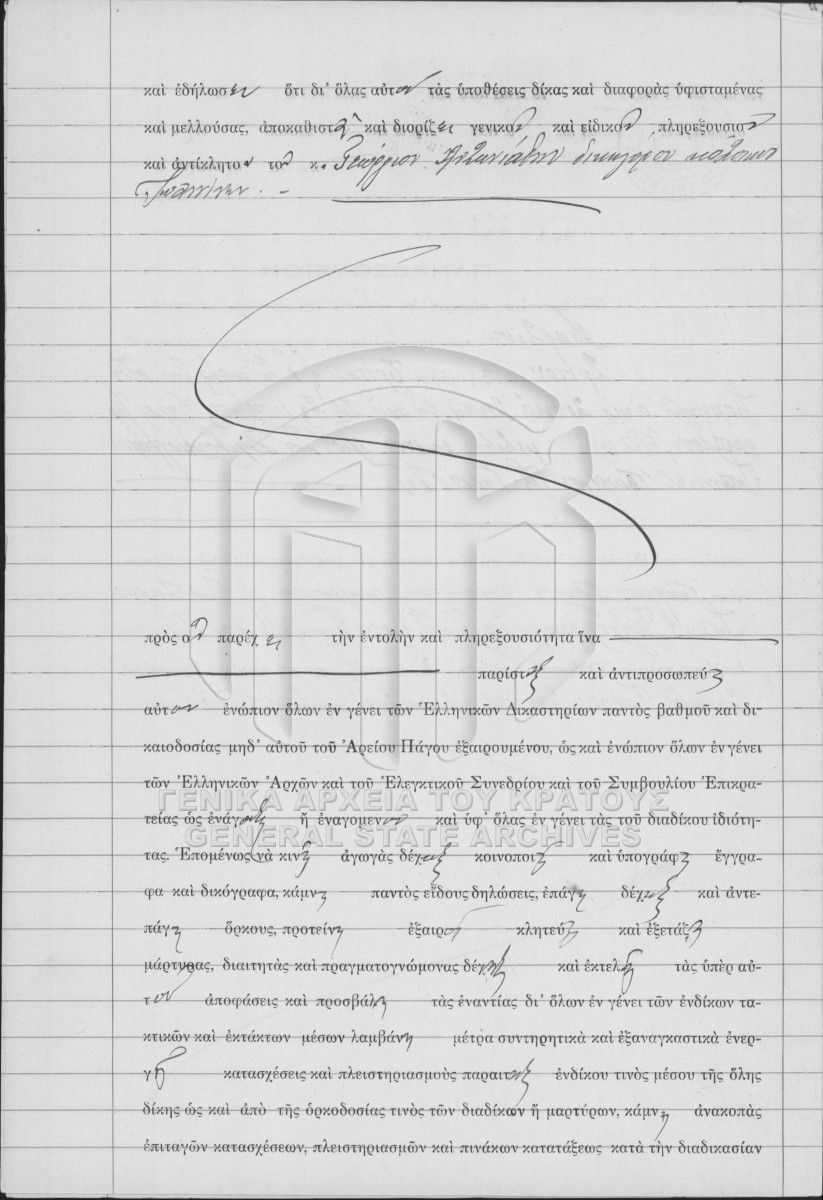 καὶ ἐδήλωσεν ὅτι δι' ὅλας αὐτοῦ τὰς ὑποθέσεις δίκας καὶ διαφορὰς ὑφισταμένας
καὶ μελλούσας, ἀποκαθιστᾷ καὶ διορίζει γενικὸν καὶ εἰδικὸν πληρεξούσιον
καὶ ἀντίκλητον τὸν κ. Γεώργιον δικηγόρον κάτοικον
Ἰωαννίνων. –
πρὸς ὃν παρέχει τὴν ἐντολὴν καὶ πληρεξουσιότητα ἵνα
παρίσταται καὶ ἀντιπροσωπεύῃ
αὐτὸν ἐνώπιον ὅλων ἐν γένει τῶν Ἑλληνικῶν Δικαστηρίων παντὸς βαθμοῦ καὶ δι-
καιοδοσίας μηδ' αὐτοῦ τοῦ Ἀρείου Πάγου ἐξαιρουμένου, ὡς καὶ ἐνώπιον ὅλων ἐν γένει
τῶν Ἑλληνικῶν Ἀρχῶν καὶ τοῦ Ἐλεγκτικοῦ Συνεδρίου καὶ τοῦ Συμβουλίου Ἐπικρα-
ΓΕΝΙΚΑ ΑΡΧΕΙΑ ΤΟΥ ΚΡΑΤΟΥΣ
τείας ὡς ἐνάγων ἢ ἐναγομενον καὶ ὑφ' ὅλας ἐν γένει τὰς τοῦ διαδίκου ἰδιότη-
GENERAL STATE ARCHIVES
τας. Ἑπομένως νὰ κινῇ ἀγωγὰς δέχηται κοινοποιῇ καὶ ὑπογράφῃ ἔγγρα-
φα καὶ δικόγραφα, κάμνῃ παντὸς εἴδους δηλώσεις, ἐπάγῃ δέχηται καὶ ἀντε-
πάγῃ ὅρκους, προτείνῃ ἐξαιρῇ κλητεύῃ καὶ ἐξετάζῃ
μάρτυρας, διαιτητὰς καὶ πραγματογνώμονας δέχηται καὶ ἐκτελῇ τὰς ὑπὲρ αὐ-
τοῦ ἀποφάσεις καὶ προσβάλῃ τὰς ἐναντίας δι' ὅλων ἐν γένει τῶν ἐνδίκων τα-
κτικῶν καὶ ἐκτάκτων μέσων λαμβάνῃ μέτρα συντηρητικὰ καὶ ἐξαναγκαστικὰ ἐνερ-
γῇ κατασχέσεις καὶ πλειστηριασμοὺς παραιτῆται ἐνδίκου τινὸς μέσου τῆς ὅλης
δίκης ὡς καὶ ἀπὸ τῆς ὁρκοδοσίας τινὸς τῶν διαδίκων ἢ μαρτύρων, κάμνῃ ἀνακοπὰς
ἐπιταγῶν κατασχέσεων, πλειστηριασμῶν καὶ πινάκων κατατάξεως κατὰ τὴν διαδικασίαν